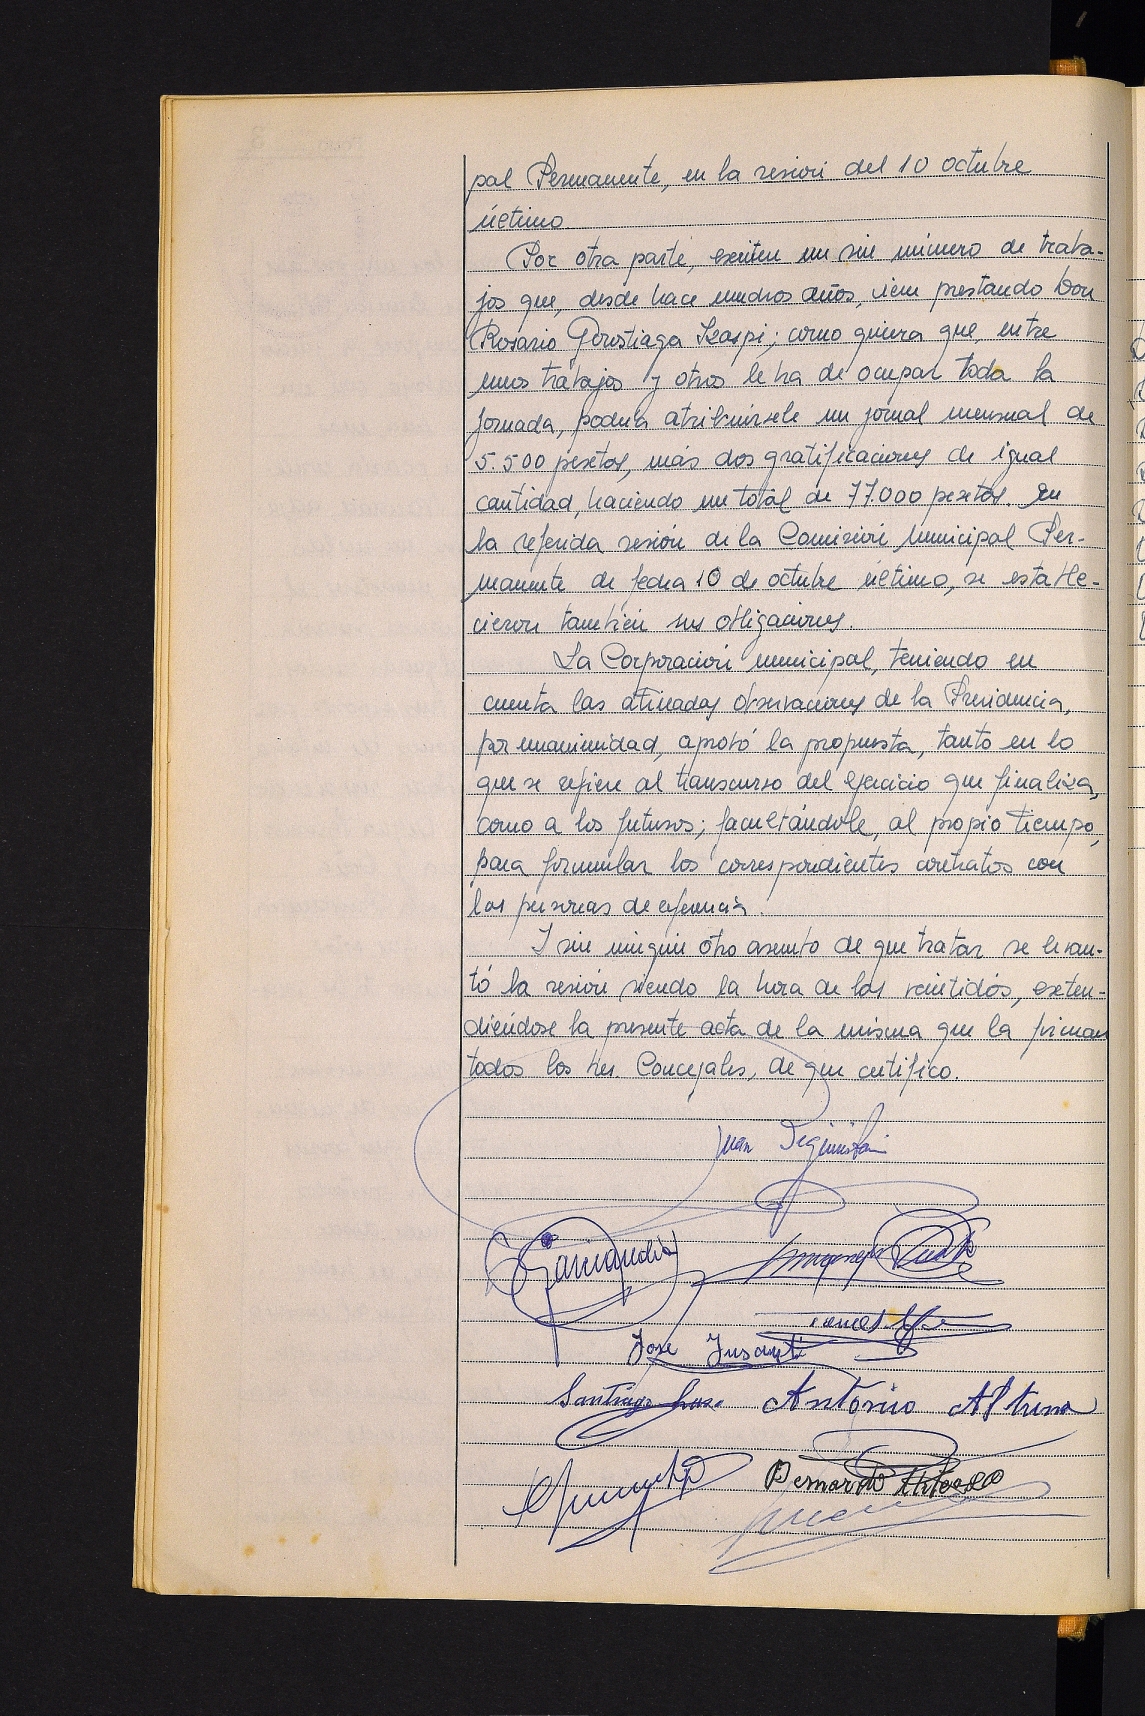 pal Permanente, en la sesión del 10 octubre
último.
Por otra parte, existen un sin número de traba-
jos que, desde hace muchos años, viene prestando Don
Rosario Gorostiaga Izaspi; como quiera que, entre
unos trabajos y otros le ha de ocupar toda la
jornada, podría atribuirsele un jornal mensual de
5.500 pesetas, más dos gratificaciones de igual
cantidad, haciendo un total de 77.000 pesetas. En
la referida sesión de la Comisión Municipal Per-
manente de fecha 10 de octubre último, se estable-
cieron también sus obligaciones.
La Corporación municipal, teniendo en
cuenta las atinadas observaciones de la Presidencia,
por unanimidad, aprobó la propuesta, tanto en lo
que se refiere al transcurso del ejercicio que finaliza,
como a los futuros; facultándole, al propio tiempo,
para formular los correspondientes contratos con
las personas de referencia.
Y sin ningún otro asunto de que tratar se levan-
tó la sesión siendo la hora de las veintidós, exten-
diéndose la presente acta de la misma que la firman
todos los Sres. Concejales, de que certifico.
Juan
José Insausti
Santiago
Antonio Altuna
Bernardo